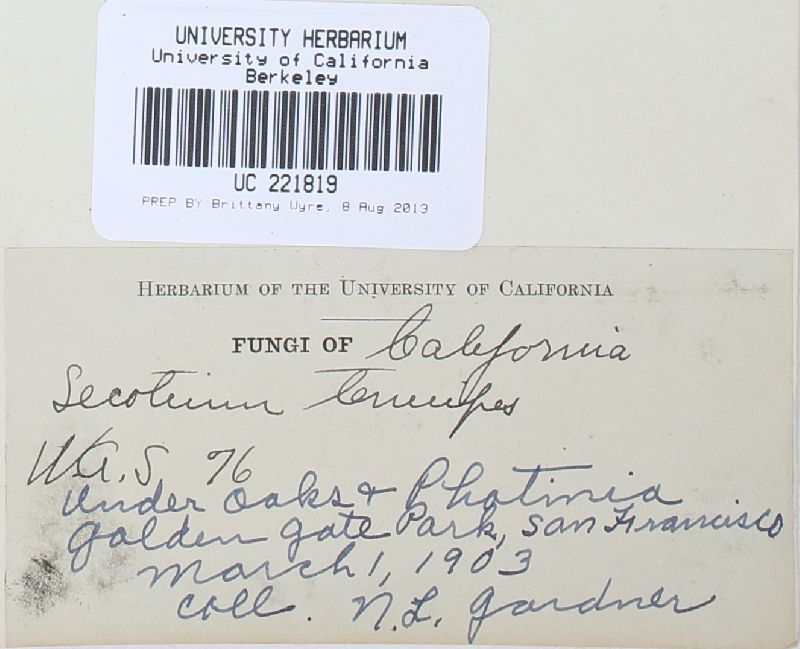 UNIVERSITY HERBARIUM
University of California
Berkeley
UC 221819
PREP BY Brittany Wyre, 8 Aug 2013
HERBARIUM OF THE UNIVERSITY OF CALIFORNIA
FUNGI OF California
Secotium tenuipes
W.A.S 76
Under Oaks & Photinia
Golden Gate Park, San Francisco
March 1, 1903
Coll. N.L. Gardner